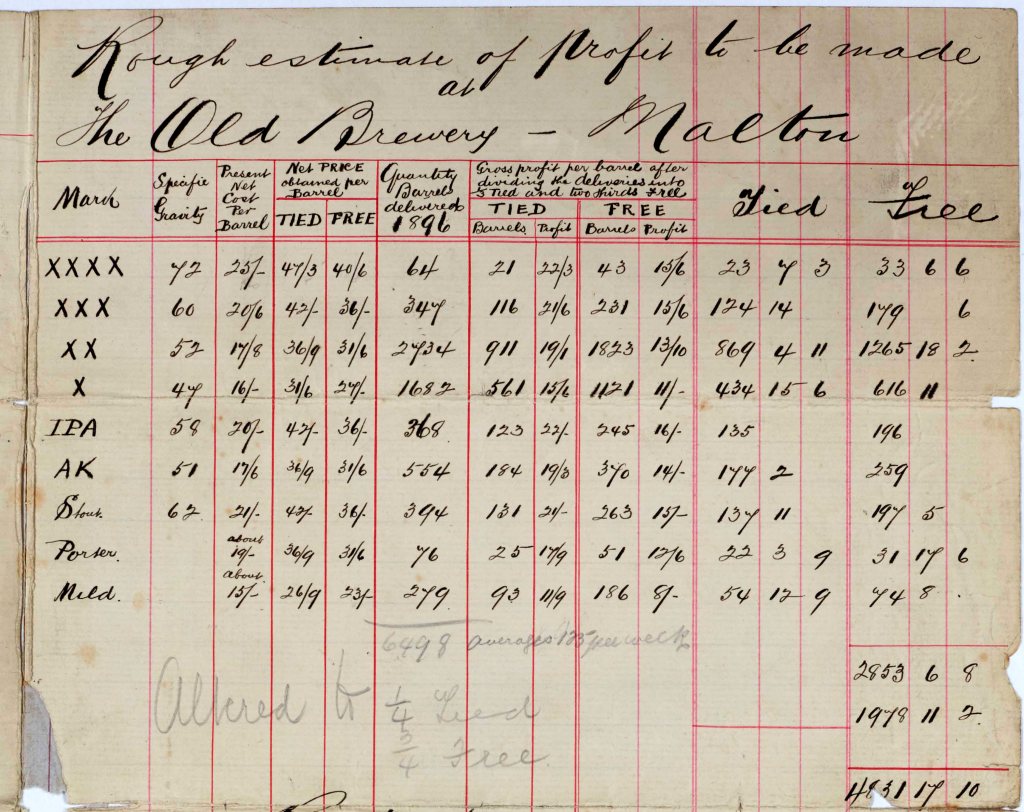 Rough estimate of profit to be made
at
The Old Brewery – Malton
Mark Specific Gravity Present Net Cost Per Barrel Net PRICE obtained per Barrel TIED FREE Quantity Barrels delivered 1896 Gross profit per barrel after dividing the deliveries into ⅓ Tied and two thirds Free TIED Barrels Profit FREE Barrels Profit Tied Free
XXXX 72 25/- 47/3 40/6 64 21 22/3 43 15/6 23 7 3 33 6 6
XXX 60 20/6 42/- 36/- 347 116 21/6 231 15/6 124 14 179 6
XX 52 17/8 36/9 31/6 2734 911 19/1 1823 13/10 869 4 11 1265 18 2
X 47 16/- 31/6 27/- 1682 561 15/6 1121 11/- 434 15 6 616 11
IPA 58 20/- 42/- 36/- 368 123 22/- 245 16/- 135 196
AK 51 17/6 36/9 31/6 554 184 19/3 370 14/- 177 2 259
Stout 62 21/- 42/- 36/- 394 131 21/- 263 15/- 137 11 197 5
Porter. about 19/- 36/9 31/6 76 25 17/9 51 12/6 22 3 9 31 17 6
Mild. about 15/- 26/9 23/- 279 93 11/9 186 8/- 54 12 9 74 8
6498 averages 125 per week
2853 6 8
Altered to ¼ Tied
1978 11 2
¾ Free.
4831 17 10